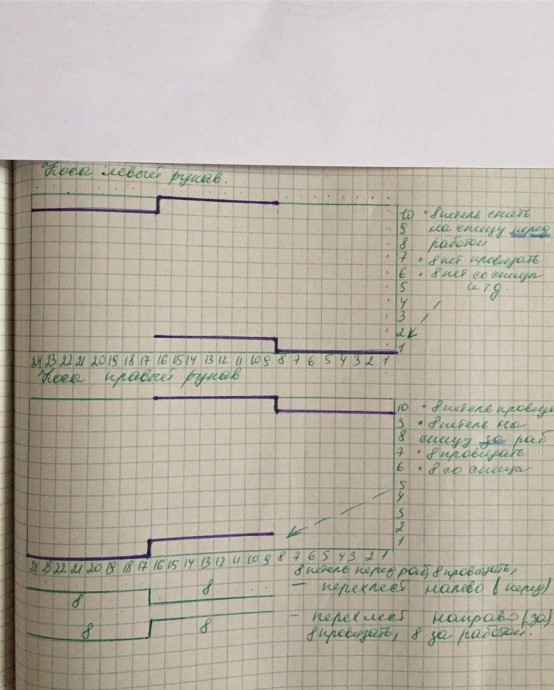 Коса левый рукав.
10 • 8 петель снять
9 на спицу перед
8 работой
7 • 8 пет провязать
6 • 8 пет со спицы
5 и т.д.
4
3
2
1
24 23 22 21 20 19 18 17 16 15 14 13 12 11 10 9 8 7 6 5 4 3 2 1
Коса правый рукав
10 • 8 петель провяз
9 • 8 петель на
8 спицу за раб
7 • 8 провязать
6 • 8 со спицы
5
4
3
2
1
24 23 22 21 20 19 18 17 16 15 14 13 12 11 10 9 8 7 6 5 4 3 2 1
8 петель перед раб, 8 провязать,
8 8 — перехлест налево (перед)
8 8 — перехлест направо (за)
8 провязать, 8 за работой.